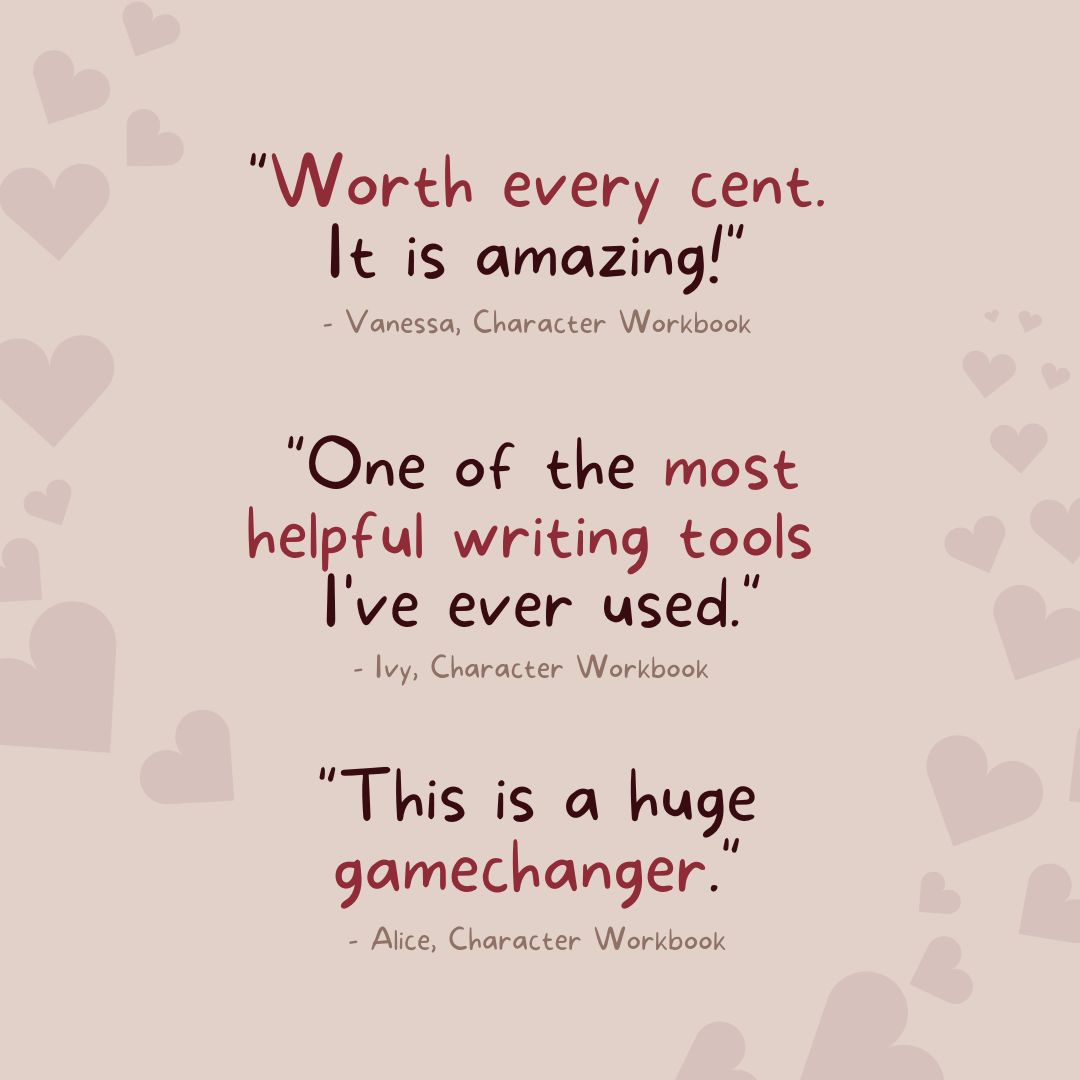 "Worth every cent.
It is amazing!"
- Vanessa, Character Workbook
"One of the most
helpful writing tools
I've ever used."
- Ivy, Character Workbook
"This is a huge
gamechanger."
- Alice, Character Workbook